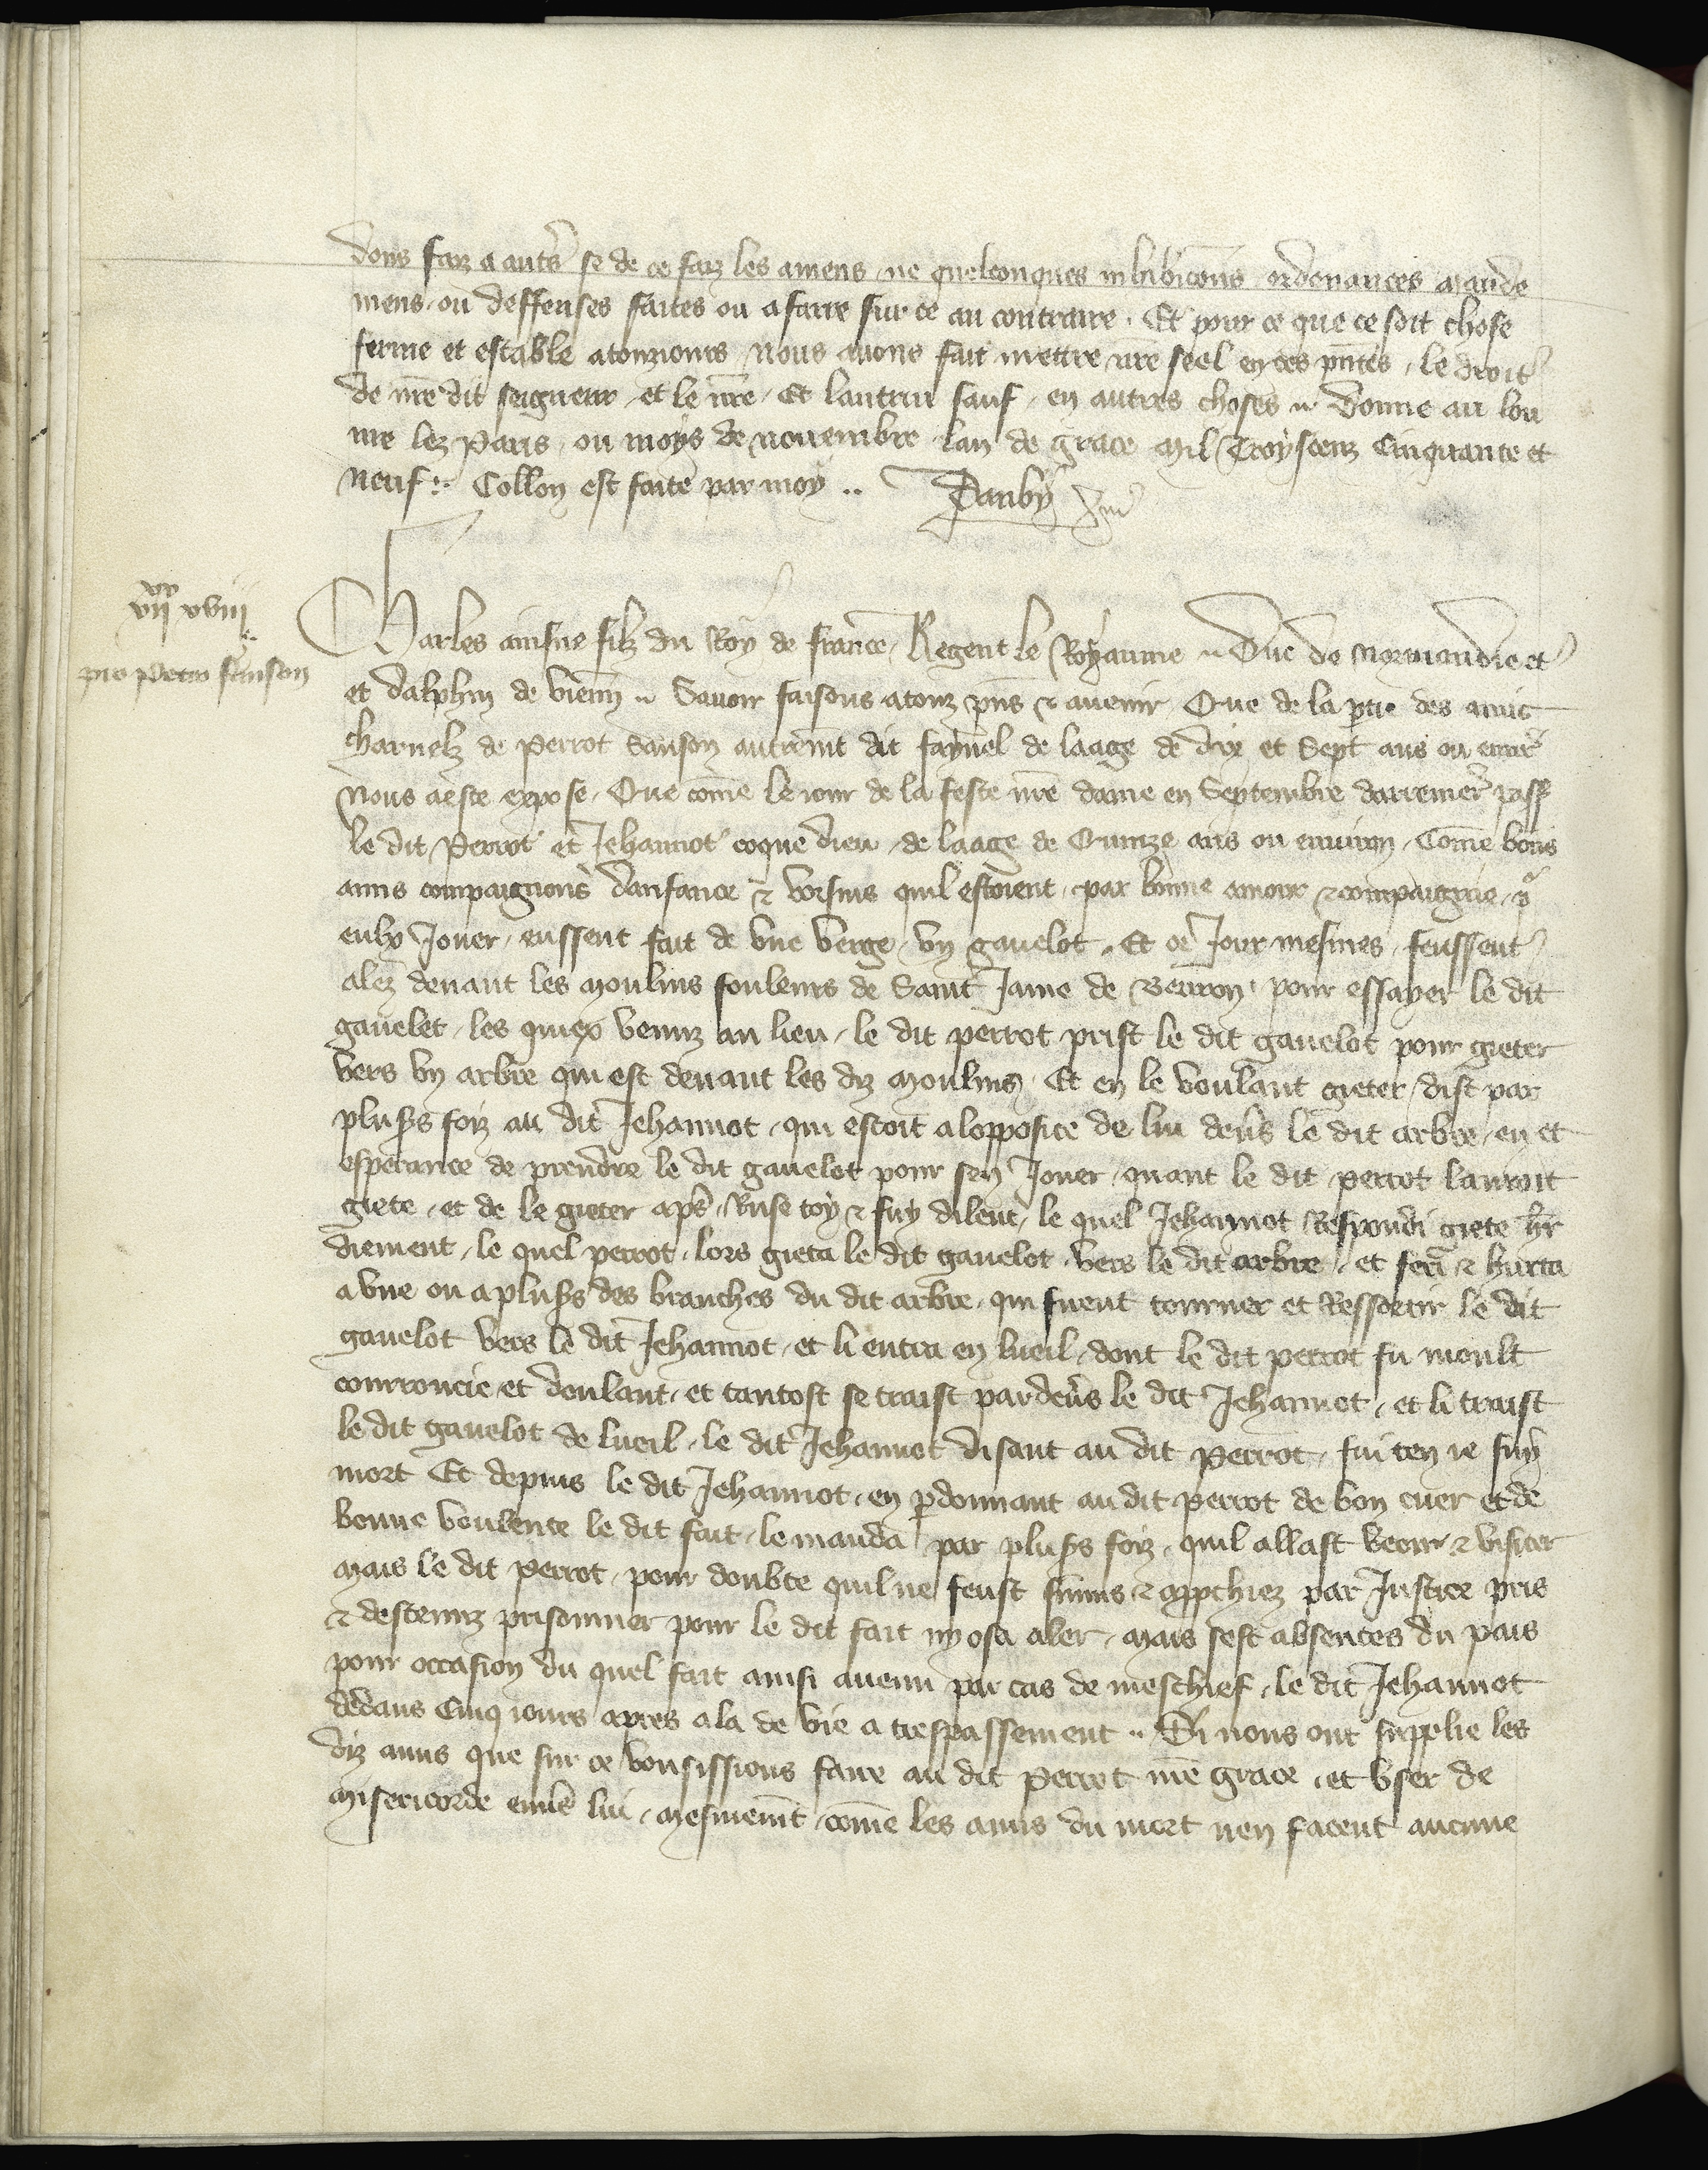 dons faiz a autrs se de ce faiz les amens ne quelconques inhibicons ordenances mande
mens ou deffenses faites ou a faire sur ce au contraire. Et pour ce que ce soit chose
ferme et estable atouzjours nous auons fait mettre nre seel en ces pntes, le droit
de nre dit seigneur et le nre Et lautrui sauf en autres choses Donne au lou
ure lez Paris, ou moys de nouembre lan de grace Mil Troyscenz Cinquante et
neuf :. Collon est faite par moy .. Tanby
vii xx xviii
pro petro sanson
Charles ainsne filz du Roy de france, Regent le Royaume Duc de Normandie et
et dalphin de vienn Sauoir faisons atouz pns & auenir Que de la ptie des amis
charnelz de Perrot Sanson autremt dit faynel de laage de dix et Sept ans ou enuir
Nous a este expose, Que come le iour de la feste nre dame en Septembre darrenier pass
le dit Perrot et Jehannot coque dieu de laage de Quinze ans ou enuiron, Come bons
amis compaignons danfance & voisins quil estoient, par bonne amour & compaignie, p
eulx Jouer, eussent fait de vne verge vn gauelot, Et ce Jour mesmes feussent
alez deuant les Moulins fouleurs de Saint Jame de Beuron pour essayer le dit
gauelet, les quiex venuz au lieu, le dit perrot prist le dit gauelot pour gieter
vers vn arbre qui est deuant les diz Moulins, Et en le voulant gieter dist par
plusrs foiz au dit Jehannot, qui estoit a lopposite de lui deuers le dit arbre, en et
esperance de prendre le dit gauelot pour sen Jouer, quant le dit perrot lauroit
giete, et de le gieter aps, Ruse toy & fuy dilent, le quel Jehannot Respondi giete hr
diement, le quel perrot, lors gieta le dit gauelot vers le dit arbre, et feri & hurta
a vne ou a plusrs des branches du dit arbre, qui firent tourner et Ressortir le dit
gauelot vers le dit Jehannot, et li entra en lueil, dont le dit perrot fu moult
courroucie et doulant, et tantost se traist pardeuers le dit Jehannot, et li traist
le dit gauelot de lueil, le dit Jehannot disant au dit Perrot, fui ten ie suy
mort Et depuis le dit Jehannot, en pdonnant au dit perrot de bon cuer et de
bonne voulente le dit fait, le manda par plusrs foiz, quil allast veoir & visiter
Mais le dit Perrot, pour doubte quil ne feust & par Justice pris
& destenuz prisonnier pour le dit fait ny osa aler, Mais sest absentes du pais
pour occasion du quel fait ainsi auenu par cas de meschief, le dit Jehannot
dedans Cinq iours apres ala de vie a trespassement Si nous ont supplie les
diz amis que sur ce vousissions faire au dit Perrot nre grace, et vser de
Misericorde enuers lui, Mesmemt come les amis du mort nen facent aucune